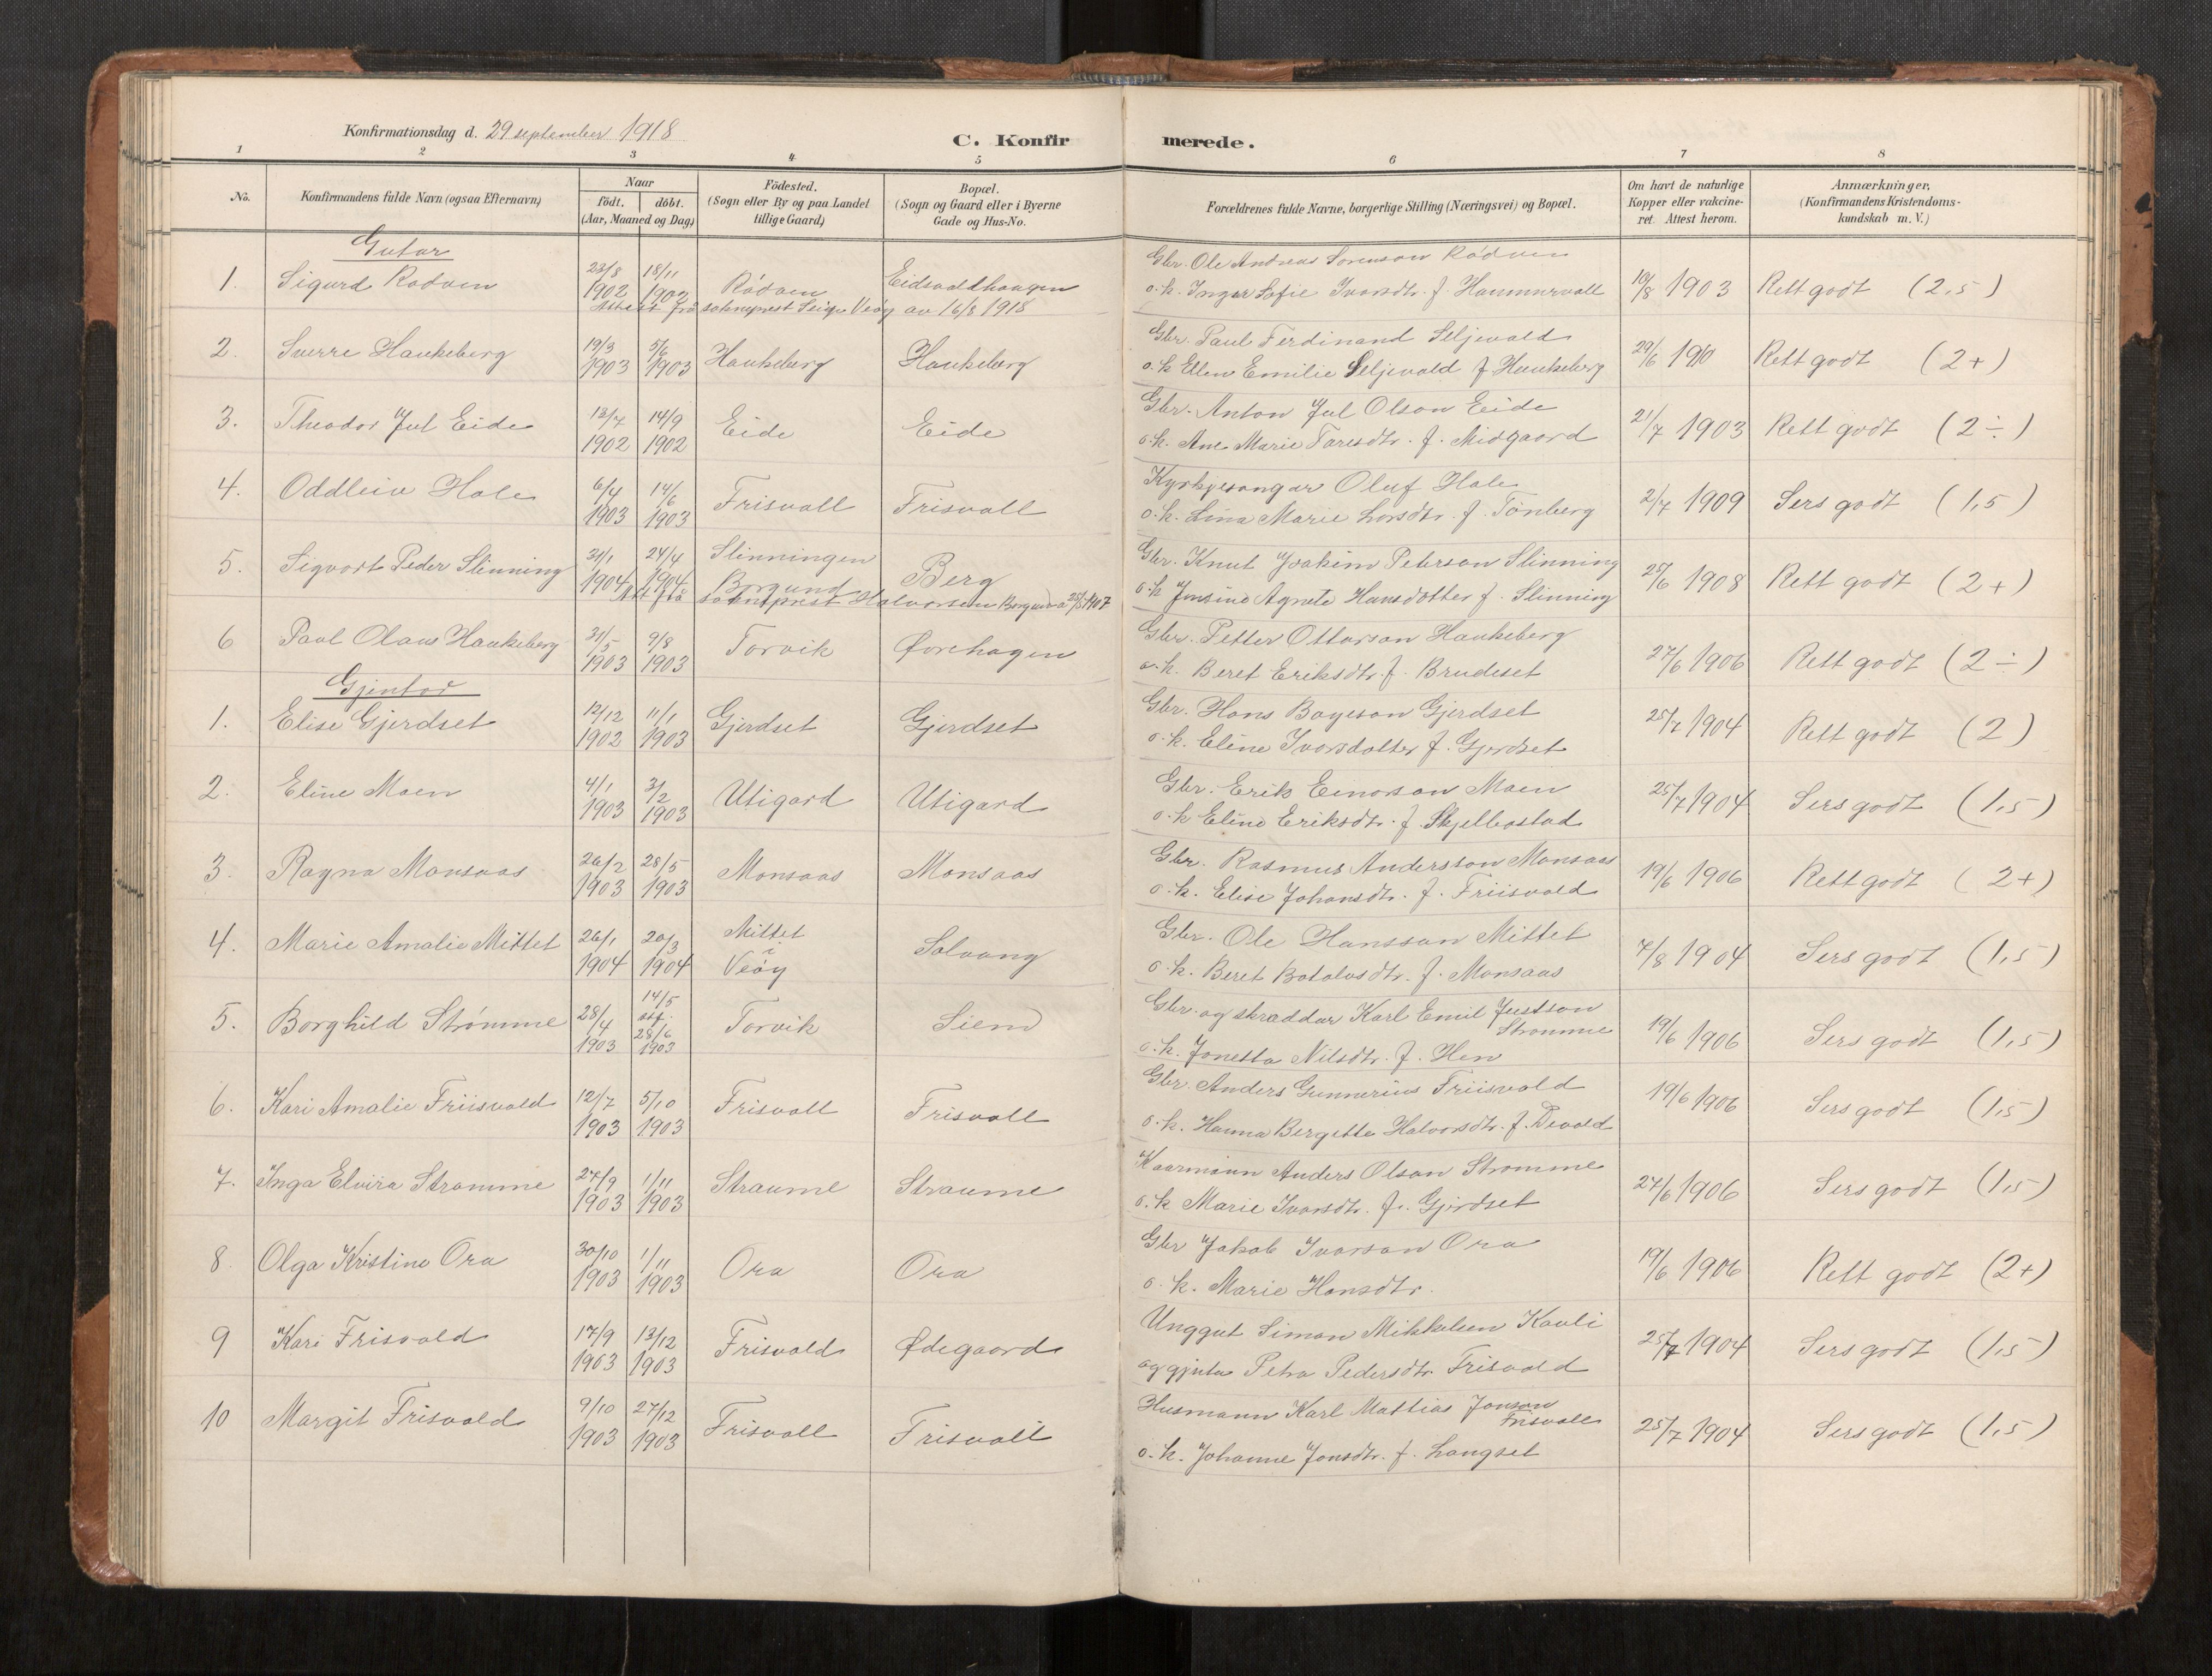 Konfirmationsdag d. 29 september 1918
C. Konfirmerede.
1 2 3 4 5 6 7 8
No. Konfirmandens fulde Navn (ogsaa Efternavn) Naar födt. döbt. (Aar, Maaned og Dag) Födested. (Sogn eller By og paa Landet tillige Gaard) Bopæl. (Sogn og Gaard eller i Byerne Gade og Hus-No. Forældrenes fulde Navne, borgerlige Stilling (Næringsvei) og Bopæl. Om havt de naturlige Kopper eller vakcineret. Attest herom. Anmærkninger, (Konfirmandens Kristendomskundskab m. V.)
Gutar
1. Sigurd Rødven 23/8 1902 18/11 1902 Rødven Eidsvaldhaugen Gbr. Ole Andreas Sørenson Rødven
o. k. Inger Sofie Ivarsdtr. f. Hammervoll 10/8 1903 Rett godt (2,5)
Attest frå sokneprest Veöy av 16/8 1918
2. Sverre Haukeberg 19/3 1903 5/6 1903 Haukeberg Haukeberg Gbr. Paul Ferdinand Seljevald
o. k Ellen Emilie Seljevald f Haukeberg 29/6 1910 Rett godt (2+)
3. Theodor Jul Eide 13/7 1902 14/9 1902 Eide Eide Gbr. Anton Jul Olson Eide
o. k. Ane Marie Taresdtr. f. Midgaard 21/7 1903 Rett godt (2÷)
4. Oddleiv Hole 6/4 1903 14/6 1903 Frisvoll Frisvoll Kyrkjesongar Oluf Hole
o. k. Lina Marie Larsdtr. f. Tønberg 2/7 1909 Sers godt (1,5)
5. Sigvart Peder Slinning 31/1 1904 24/4 1904 Slinningen Borgund Berg Gbr. Knut Joakim Peterson Slinning
o. k Jensine Agnete Hansdotter f. Slinning 25/6 1908 Rett godt (2+)
Att frå soknprest Halvorsen Borgund 1907
6 Paul Olaus Haukeberg 31/5 1903 9/8 1903 Torvik Øvrehagen Gbr. Petter Ottarson Haukeberg
o. k. Beret Eriksdtr. f. Brudeset 27/6 1906 Rett godt (2÷)
Gjentor
1. Elise Gjerdset 12/12 1902 11/1 1903 Gjerdset Gjerdset Gbr. Hans Bayeson Gjerdset
o. k. Eline Ivarsdatter f. Gjerdset 25/7 1904 Rett godt (2)
2. Eline Moen 4/1 1903 3/2 1903 Utigard Utigard Gbr. Erik Einarson Moen
o. k Eline Eriksdtr. f. Skjelbostad 25/7 1904 Sers godt (1,5)
3. Ragna Monsaas 26/2 1903 28/5 1903 Monsaas Monsaas Gbr. Rasmus Andersson Monsaas
o. k. Elise Johansdtr. f. Friisvold 19/6 1906 Rett godt (2+)
4. Marie Amalie Mittet 26/1 1904 20/3 1904 Mittet i Veöy Solvang Gbr. Ole Hansson Mittet
o. k. Beret Botolvsdtr. f. Monsaas 7/8 1904 Sers godt (1,5)
5. Borghild Strømme 28/4 1903 14/5 stf. 28/6 1903 Torvik Siem Gbr. og skræddar Karl Emil Justson Strømme
o. k. Jonetta Nilsdtr. f. Hen 19/6 1906 Sers godt (1,5)
6. Kari Amalie Friisvold 12/7 1903 5/10 1903 Frisvoll Frisvoll Gbr. Anders Gunnerius Friisvold
o. k. Hanna Bergitte Halvorsdtr. f. Devold 19/6 1906 Sers godt (1,5)
7. Inga Elvira Strømme 27/9 1903 1/11 1903 Straume Straume Kaarmann Anders Olson Strømme
o. k Marie Ivarsdtr. f. Gjerdset 27/6 1906 Sers godt (1,5)
8 Olga Kristine Ora 30/10 1903 1/11 1903 Ora Ora Gbr Jakob Ivarson Ora
o. k. Marie Hansdtr. 19/6 1906 Rett godt (2+)
9 Kari Frisvold 17/9 1903 13/12 1903 Frisvold Ødegaard Unggut Simon Mikkelsen Kavli
og gjenta Petra Pedersdtr. Frisvold 25/7 1904 Sers godt (1,5)
10 Margit Frisvold 9/10 1903 27/12 1903 Frisvoll Frisvoll Husmann Karl Mattias Jonson Frisvoll
o. k. Johanne Jonsdtr. f. Langset 25/7 1904 Sers godt (1,5)